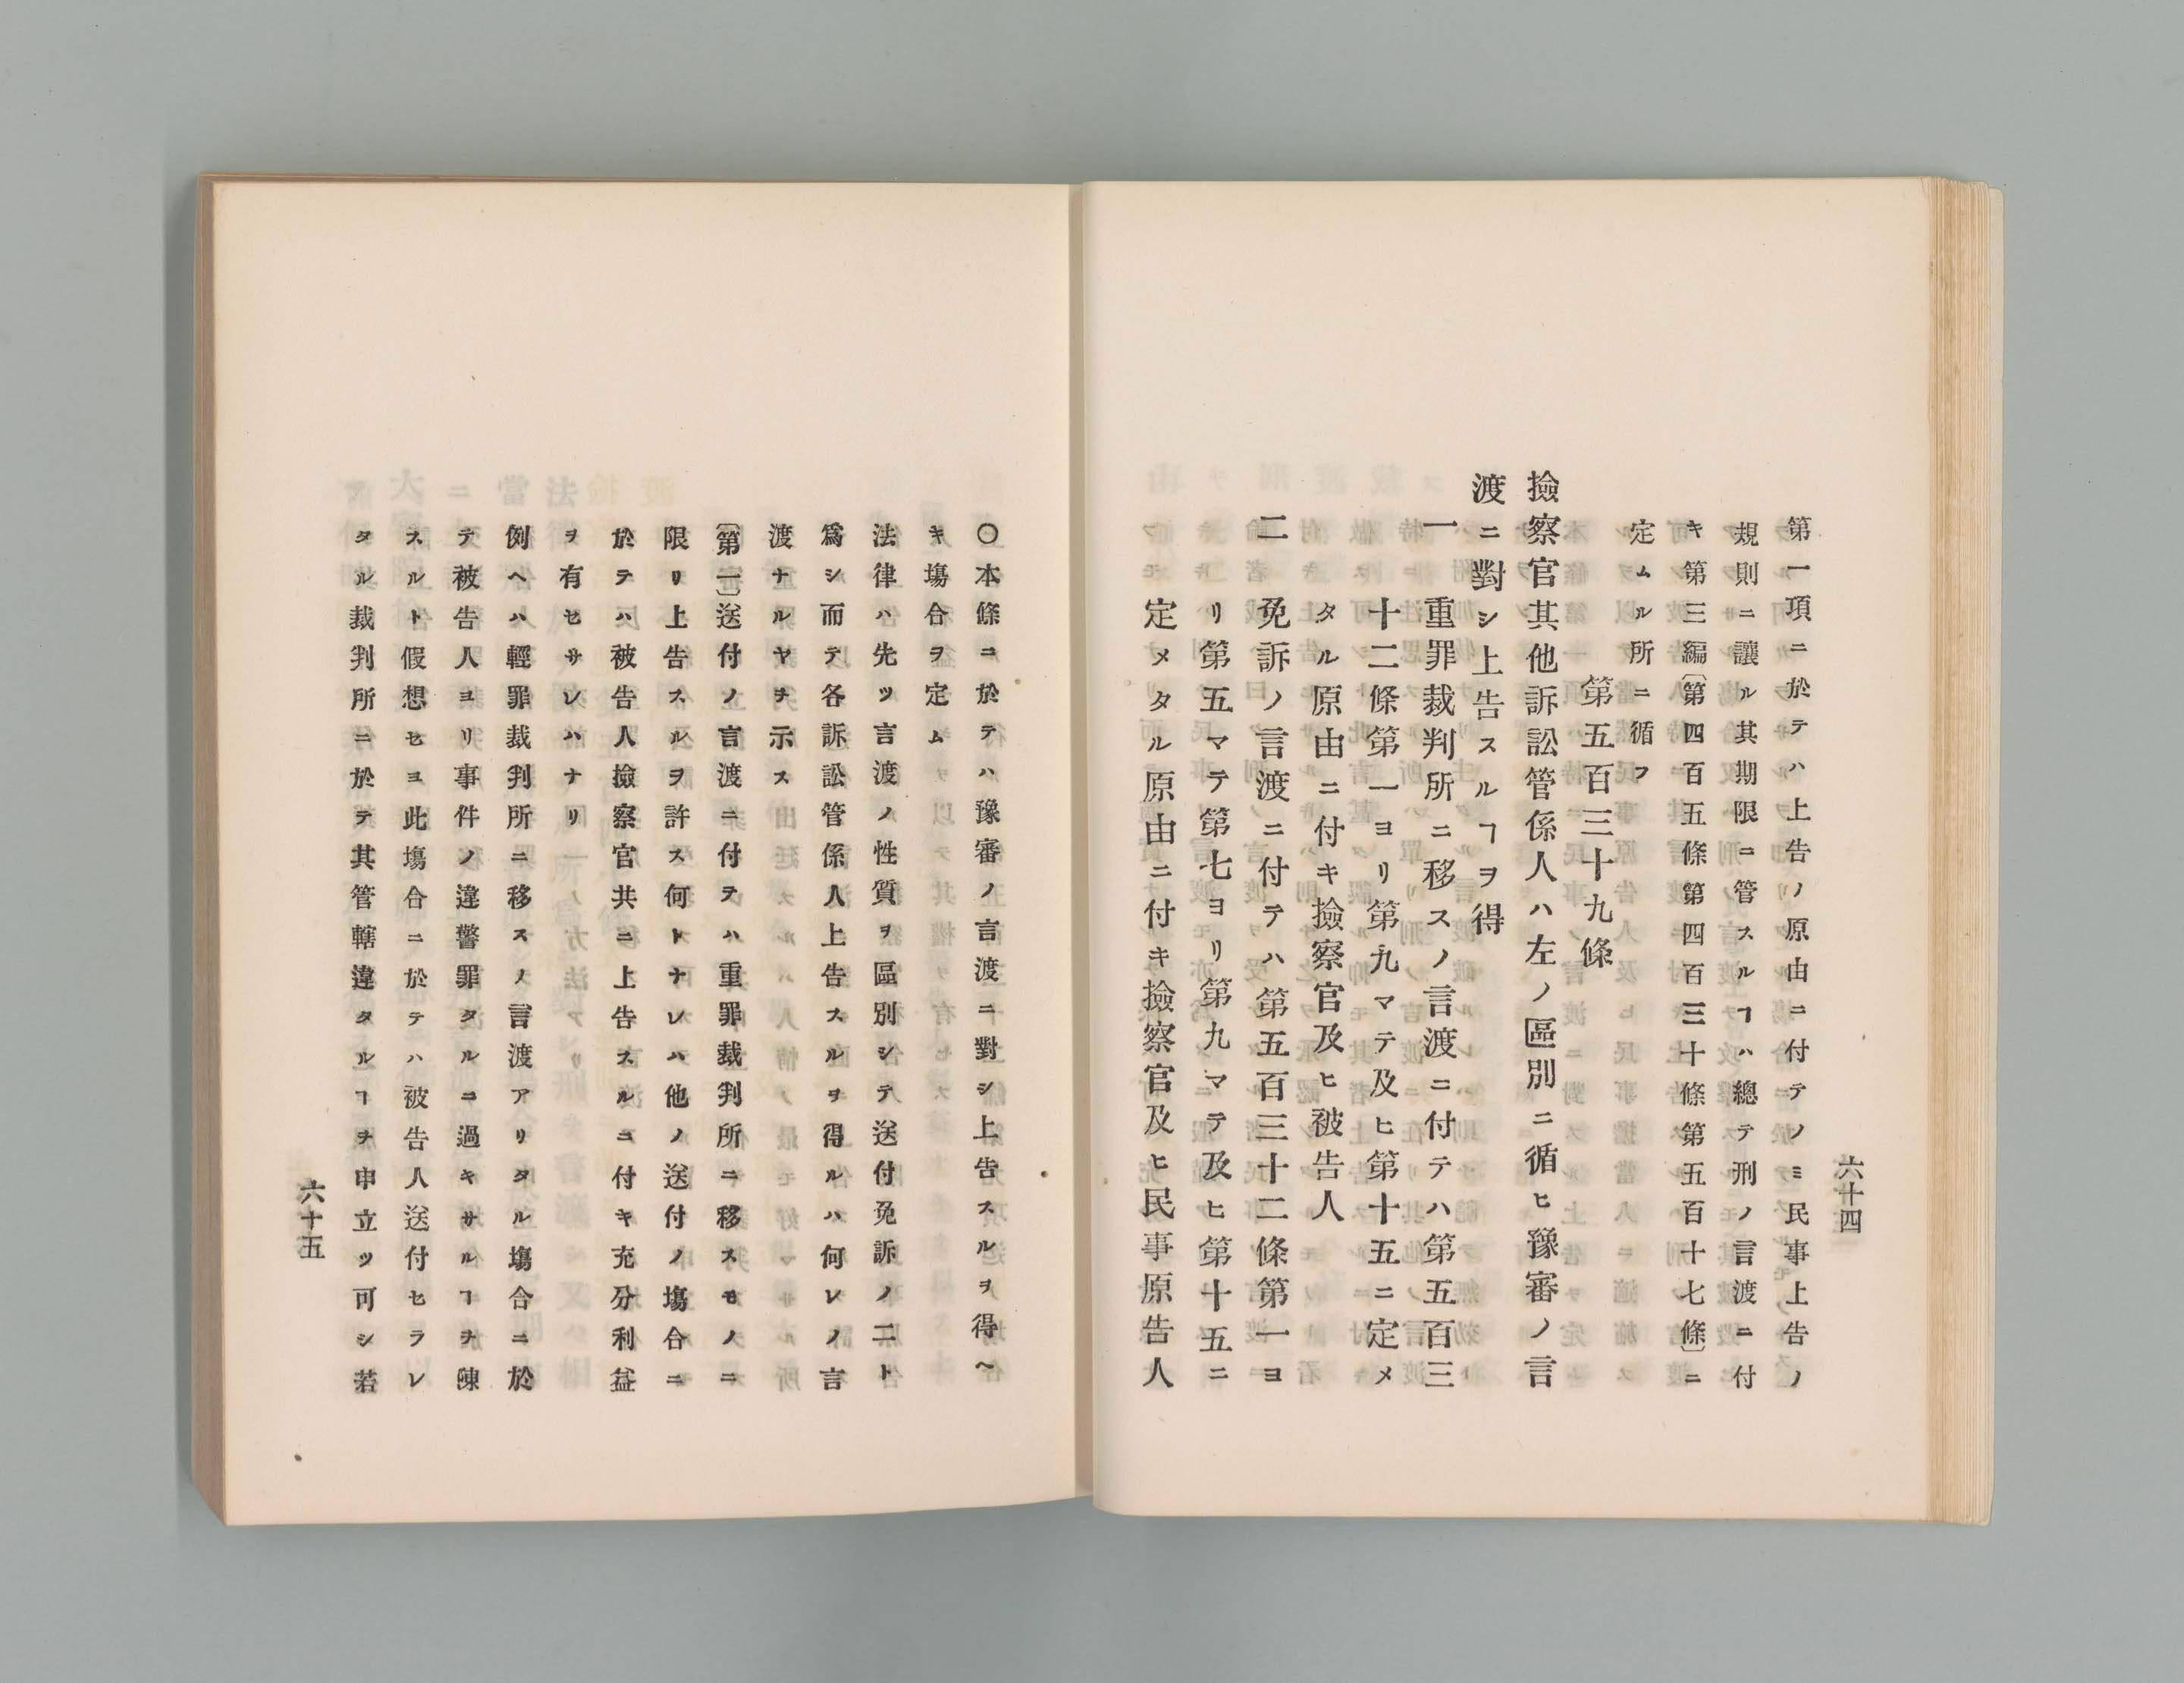 六十四
第一項ニ於テハ上告ノ原由ニ付テノミ民事上告ノ
規則ニ讓ル其期限ニ管スルヿハ總テ刑ノ言渡ニ付
キ第三編〔第四百五條第四百三十條第五百十七條〕ニ
定ムル所ニ循フ
第五百三十九條
撿察官其他訴訟管係人ハ左ノ區別ニ循ヒ豫審ノ言
渡ニ對シ上告スルヿヲ得
一 重罪裁判所ニ移スノ言渡ニ付テハ第五百三
十二條第一ヨリ第九マテ及ヒ第十五ニ定メ
タル原由ニ付キ撿察官及ヒ被告人
二 免訴ノ言渡ニ付テハ第五百三十二條第一ヨ
リ第五マテ第七ヨリ第九マテ及ヒ第十五ニ
定メタル原由ニ付キ撿察官及ヒ民事原告人
〇本條ニ於テハ豫審ノ言渡ニ對シ上告スルヲ得ヘ
キ塲合ヲ定ム
法律ハ先ツ言渡ノ性質ヲ區別シテ送付免訴ノ二ト
爲シ而テ各訴訟管係人上告スルヲ得ルハ何レノ言
渡ナルヤヲ示ス
〔第一〕送付ノ言渡ニ付テハ重罪裁判所ニ移スモノニ
限リ上告スルヲ許ス何トナレハ他ノ送付ノ塲合ニ
於テハ被告人撿察官共ニ上告スルニ付キ充分利益
ヲ有セサレハナリ
例ヘハ輕罪裁判所ニ移スノ言渡アリタル塲合ニ於
テ被告人ヨリ事件ノ違警罪タルニ過キサルヿヲ陳
スルト假想セヨ此塲合ニ於テハ被告人送付セラレ
タル裁判所ニ於テ其管轄違タルヿヲ申立ツ可シ若
六十五